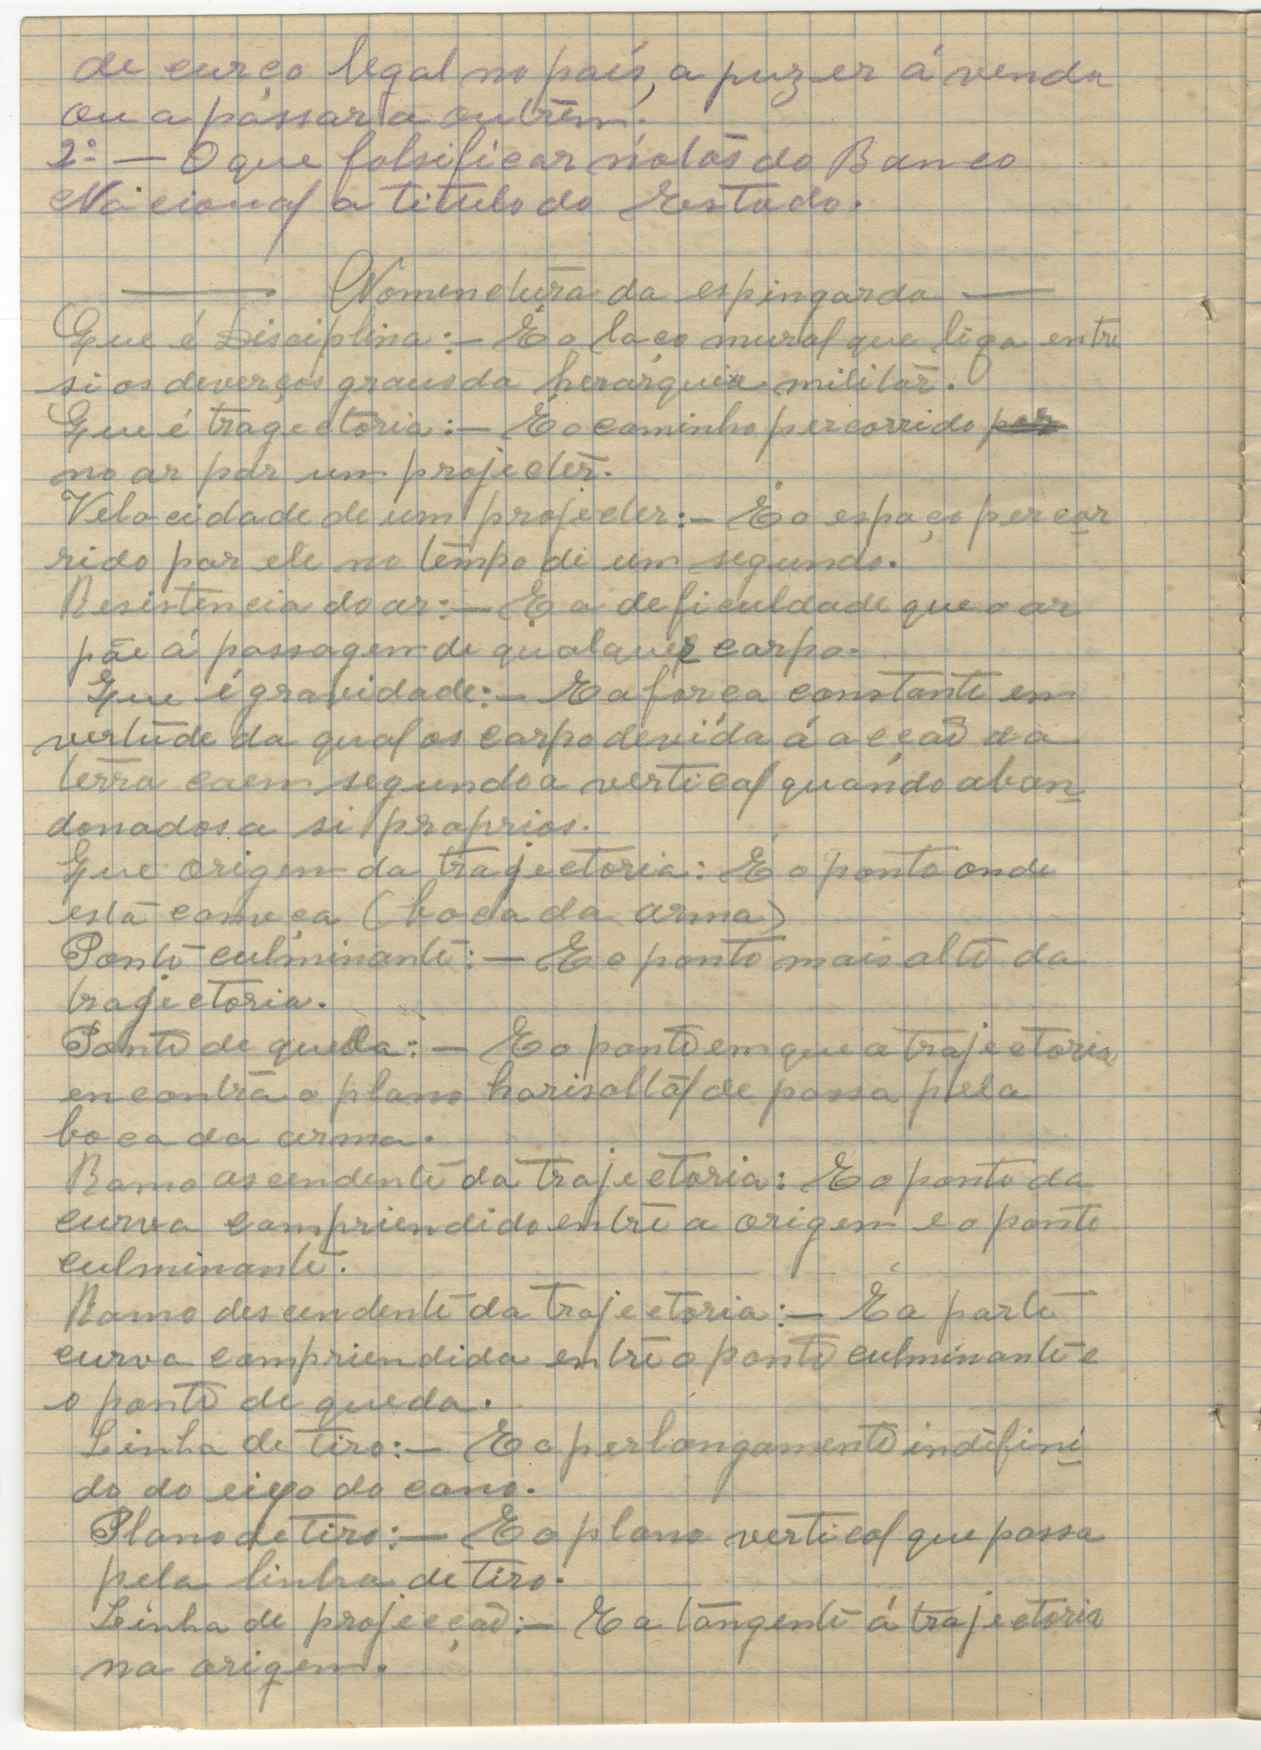 de curço legal no país, a puzer á venda
ou a passar a outrem.
2º — O que folsificar notas do Banco
Nacional a titulo do Estado.
Nomenclura da espingarda
Que é Disciplina:— É o laço mural que liga entre
si os deverços graus da herarquia militar.
Que é tragectoria:— É o caminho percorrido por
no ar por um projecter.
Velocidade de um projecter:— É o espaço percor
rido por ele no tempo di um segundo.
Resistencia do ar:— É a deficuldade que o ar
põe á passagem de qualquer corpo.
Que é gravidade:— E a força constante em
vertude da qual os corpo devida á acção da
terra caem segundo a vertical quando aban
donados a si proprios.
Que origem da trajectoria: É o ponto onde
está começa (boca da arma)
Ponto culminante:— E o ponto mais alto da
trajectoria.
Ponto de queda:— E o ponto em que a trajectoria
encontra o plano horisoltal de passa pela
boca da arma.
Ramo ascendente da trajectoria: E o ponto da
curva compriendido entre a origem e o ponto
culminante.
Ramo descendente da trajectoria:— É a parte
curva compriendida entre o ponto culminante e
o ponto de queda.
Linha de tiro:— E o perlongamento indifini
do do eixo do cano.
Plano de tiro:— E o plano vertical que passa
pela linha de tiro.
Linha de projecção:— E a tangente á trajectoria
na origem.